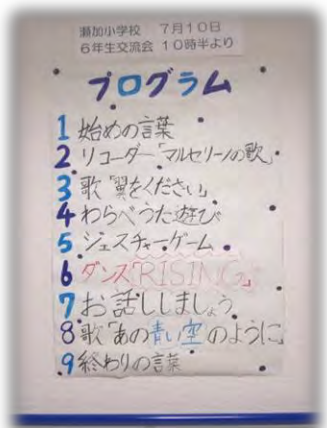 瀬加小学校 7月10日
6年生交流会 10時半より
プログラム
1 始めの言葉
2 リコーダー「マルセリーノの歌」
3 歌「翼をください」
4 わらべうた遊び
5 ジェスチャーゲーム
6 ダンス「RISING」
7 お話ししましょう
8 歌「あの青い空のように」
9 終わりの言葉